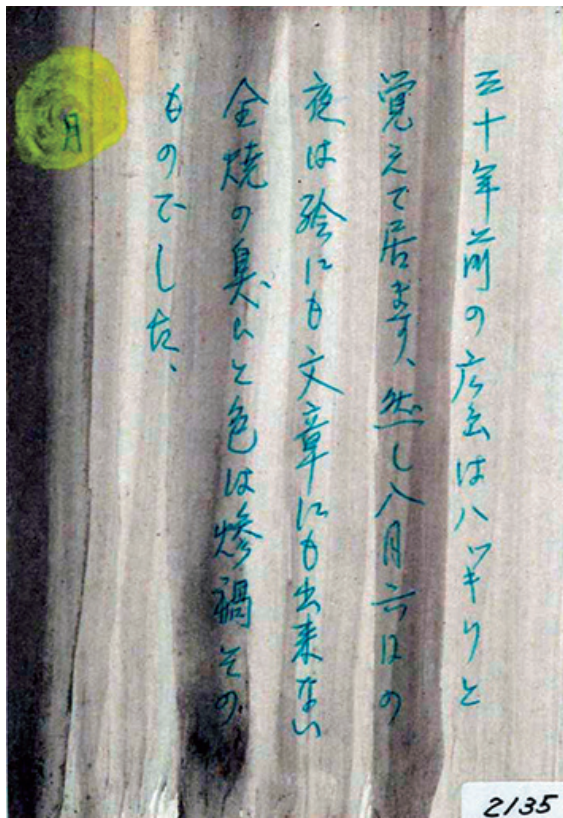 三十年前の広島はハッキリと
覚えて居ます、然し八月六日の
夜は絵にも文章にも出来ない
全焼の臭いと色は惨禍その
ものでした、
月
2135